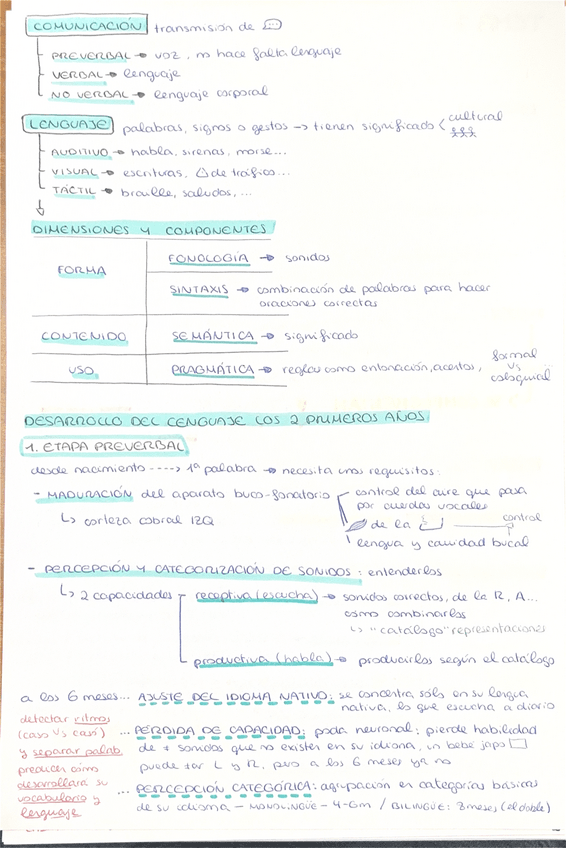 COMUNICACIÓN transmisión de
PREVERBAL → voz, no hace falta lenguaje
VERBAL → lenguaje
NO VERBAL → lenguaje corporal
LENGUAJE palabras, signos o gestos → tienen significado < cultural
AUDITIVO → habla, sirenas, morse...
VISUAL → escrituras, △ de tráfico...
TÁCTIL → braille, saludos, ...
DIMENSIONES Y COMPONENTES
FORMA
FONOLOGÍA → sonidos
SINTAXIS → combinación de palabras para hacer
oraciones correctas
CONTENIDO SEMÁNTICA → significado
USO PRAGMÁTICA → reglas como entonación, acentos, formal
vs
coloquial
DESARROLLO DEL LENGUAJE LOS 2 PRIMEROS AÑOS
1. ETAPA PREVERBAL
desde nacimiento ----> 1ª palabra → necesita unos requisitos:
- MADURACIÓN del aparato buco-fonatorio
control del aire que pasa
por cuerdas vocales
↳ corteza cobral IZQ
de la control
lengua y cavidad bucal
- PERCEPCIÓN Y CATEGORIZACIÓN DE SONIDOS: entenderlos
↳ 2 capacidades
receptiva (escucha) → sonidos correctos, de la R, A...
cómo combinarlos
↳ "catálogo" representaciones
productiva (habla) → producirlos según el catálogo
a los 6 meses... AJUSTE DEL IDIOMA NATIVO: se concentra sólo en su lengua
nativa, lo que escucha a diario
detectar ritmos
(caso vs casi)
y separar palab.
predicen cómo
desarrollara su
vocabulario y
lenguaje
... PÉRDIDA DE CAPACIDAD: poda neuronal: pierde habilidad
de ≠ sonidos que no existen en su idioma, un bebe japo
puede ≠ar L y R, pero a los 6 meses ya no
... PERCEPCIÓN CATEGÓRICA: agrupación en categorías básicas
de su idioma - MONOLINGÜE - 4-6m / BILINGÜE: 8 meses (el doble)